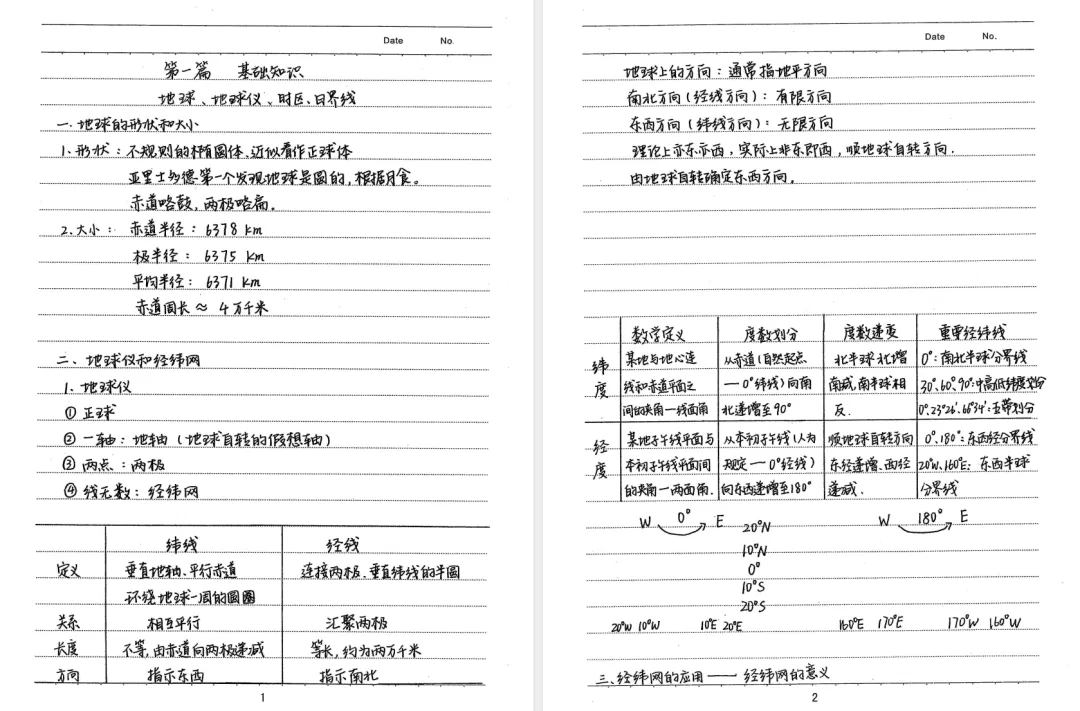 Date No.
第一篇 基础知识
地球、地球仪、时区、日界线
一.地球的形状和大小
1.形状：不规则的椭圆体.近似看作正球体
亚里士多德第一个发现地球是圆的，根据月食。
赤道略鼓，两极略扁。
2.大小：赤道半径：6378 km
极半径：6375 km
平均半径：6371 km
赤道周长≈4万千米
二、地球仪和经纬网
1.地球仪
①正球
②一轴：地轴（地球自转的假想轴）
③两点：两极
④线无数：经纬网
纬线 经线
定义 垂直地轴、平行赤道 连接两极、垂直纬线的半圆
环绕地球一周的圆圈
关系 相互平行 汇聚两极
长度 不等，由赤道向两极递减 等长，约为两万千米
方向 指示东西 指示南北
1
Date No.
地球上的方向：通常指地平方向
南北方向（经线方向）：有限方向
东西方向（纬线方向）：无限方向
理论上亦东亦西，实际上非东即西，顺地球自转方向.
由地球自转确定东西方向。
数学定义 度数划分 度数递变 重要经纬线
纬度 某地与地心连 从赤道（自然起点 北半球北增 0°：南北半球分界线
线和赤道平面之 一0°纬线）向南 南减，南半球相 30°.60°.90°：中高低纬度划分
间的夹角一线面角 北递增至90° 反. 0°.23°26′.66°34′：五带划分
经度 某地子午线平面与 从本初子午线（人为 顺地球自转方向 0°.180°：东西经分界线
本初子午线平面间 规定一0°经线） 东经递增、西经 20°W.160°E：东西半球
的夹角一两面角. 向东西递增至180° 递减. 分界线
W 0° E W 180° E
20°N
10°N
0°
10°S
20°S
20°W 10°W 10°E 20°E 160°E 170°E 170°W 160°W
三、经纬网的应用——经纬网的意义
2